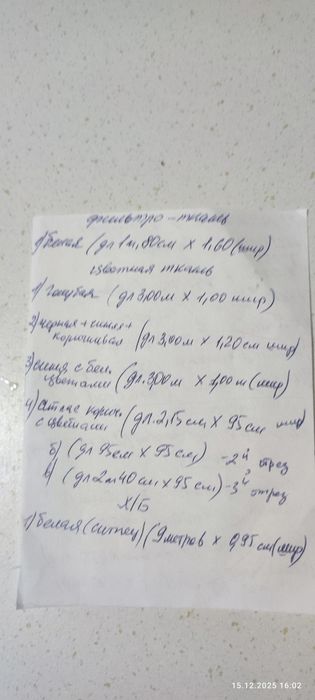 фильтро-ткань
1) Белая (дл 1м, 80см х 1,60 (шир)
цветная ткань
1) Голубая (дл 3,00м х 1,00 шир)
2) черная + синяя +
коричневая (дл 3,00м х 1,20см шир)
3) синяя с бел.
цветами (дл. 3,00м х 1,00м (шир)
4) атлас коричн.
с цветами (дл. 2,15см х 95см шир)
б) (дл 95см х 95см) -2 й отрез
в) (дл 2м 40см х 95см) -3 й отрез
Х/Б
1) Белая (ситец) (9 метров х 0,95см (шир)
15.12.2025 16:02